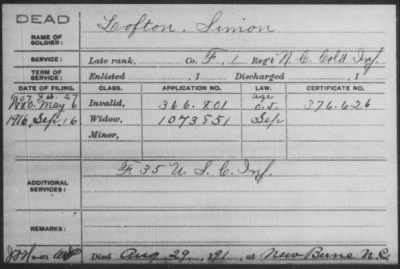 DEAD
NAME OF SOLDIER: Lofton, Simon
SERVICE: Late rank, Co. F, 1 Reg't N. C. Cold Inf.
TERM OF SERVICE: Enlisted , 1 Discharged , 1
DATE OF FILING. CLASS. APPLICATION NO. LAW. CERTIFICATE NO.
1907 Feb. 27 age
May 6 Invalid, 366.801 O.J. 376.626
1916 Sep. 16 Widow, 1073851 Sep
Minor,
ADDITIONAL SERVICES: F 35 U. S. C. Inf.
REMARKS:
Died Aug 29, 191 , at New Berne N.C.